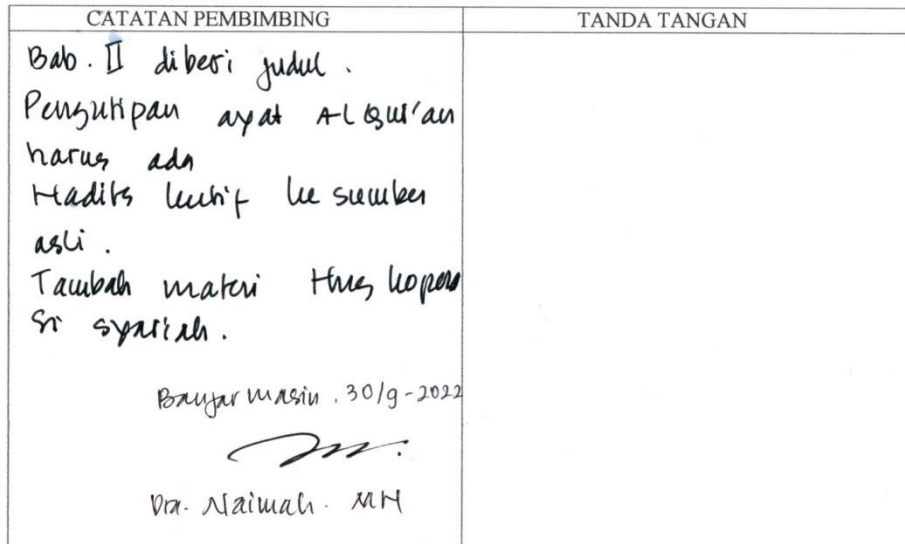 CATATAN PEMBIMBING
TANDA TANGAN
Bab. II diberi judul.
Pengutipan ayat Al Qur'an
harus ada
Hadits kutif ke sumber
asli.
Tambah materi ttng kopera
si syariah.
Banjarmasin, 30/9-2022
Dra. Naimah. MH